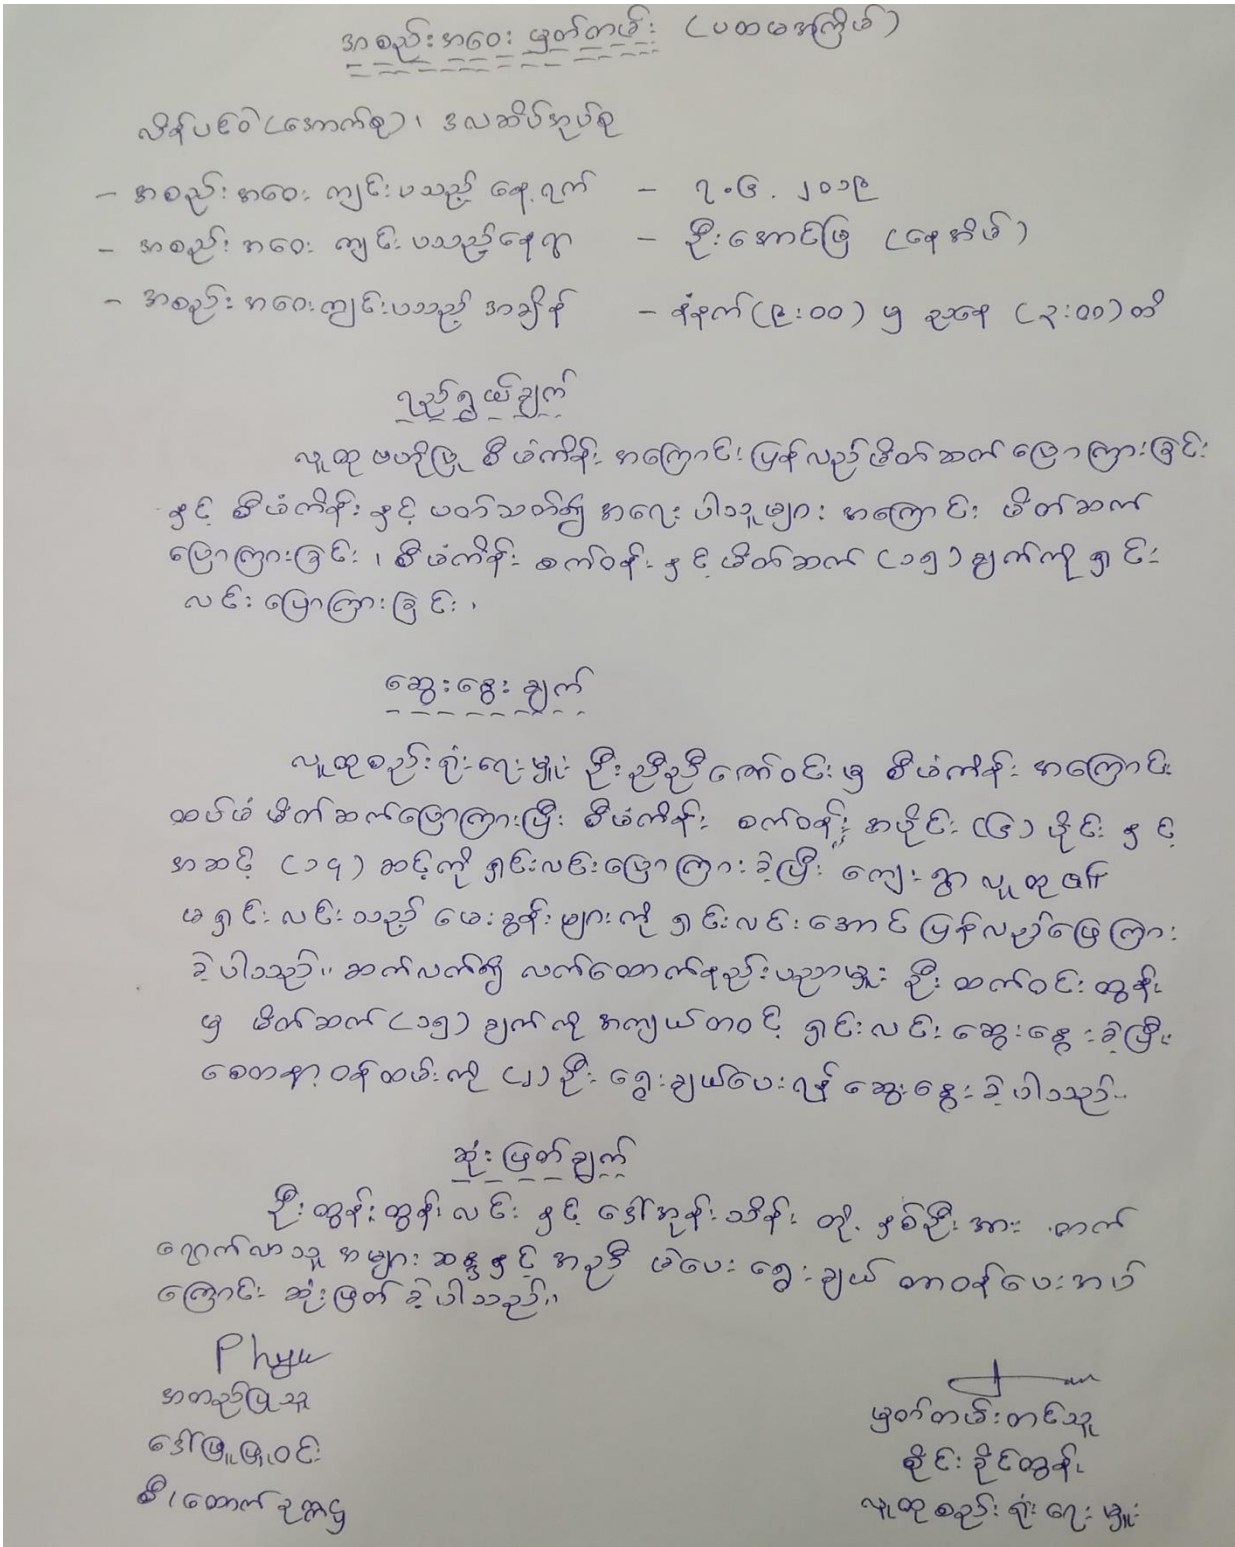 အစည်းအဝေး မှတ်တမ်း (ပထမအကြိမ်)
လိန်ပင်ဝဲ(အောက်စု)၊ ဒလဆိပ်အုပ်စု
– အစည်းအဝေး ကျင်းပသည့် နေ့ရက် – ၇.၆.၂၀၁၉
– အစည်းအဝေး ကျင်းပသည့်နေရာ – ဦးအောင်ဖြူ (နေအိမ်)
– အစည်းအဝေးကျင်းပသည့် အချိန် – နံနက်(၉:၀၀) မှ ညနေ (၃:၀၀)ထိ
ရည်ရွယ်ချက်
လူထုဗဟိုပြု စီမံကိန်း အကြောင်းပြန်လည်မိတ်ဆက် ပြောကြားခြင်း
နှင့် စီမံကိန်းနှင့် ပတ်သတ်၍ အရေးပါသူများ အကြောင်း မိတ်ဆက်
ပြောကြားခြင်း၊ စီမံကိန်း စက်ဝန်း နှင့် မိတ်ဆက် (၁၅)ချက်ကို ရှင်း
လင်းပြောကြားခြင်း၊
ဆွေးနွေးချက်
လူထုစည်းရုံးရေးမှူး ဦးညီညီဇော်ဝင်းမှ စီမံကိန်း အကြောင်း
ထပ်မံ မိတ်ဆက်ပြောကြားပြီး စီမံကိန်း စက်ဝန်း အပိုင်း (၆) ပိုင်း နှင့်
အဆင့် (၁၄) ဆင့်ကို ရှင်းလင်းပြောကြားခဲ့ပြီး ကျေးရွာ လူထု၏
မရှင်းလင်းသည့် မေးခွန်းများကို ရှင်းလင်းအောင် ပြန်လည်ဖြေကြား
ခဲ့ပါသည်။ ဆက်လက်၍ လက်ထောက်နည်းပညာမှူး ဦးထက်ဝင်းထွန်း
မှ မိတ်ဆက် (၁၅) ချက်ကို အကျယ်တဝင့် ရှင်းလင်း ဆွေးနွေးခဲ့ပြီး
စေတနာ့ဝန်ထမ်းကို (၂) ဦး ရွေးချယ်ပေးရန် ဆွေးနွေးခဲ့ပါသည်။
ဆုံးဖြတ်ချက်
ဦးထွန်းထွန်းလင်း နှင့် ဒေါ်အုန်းသိန်း တို့ နှစ်ဦးအား တက်
ရောက်လာသူ အများဆန္ဒနှင့် အညီ မဲပေး ရွေးချယ် တာဝန်ပေးအပ်
ကြောင်း ဆုံးဖြတ်ခဲ့ပါသည်။
Phyu
အတည်ပြုသူ
မှတ်တမ်းတင်သူ
ဒေါ်ဖြူဖြူဝင်း
စိုင်းခိုင်ထွန်း
စီ/ထောက်ဥက္ကဋ္ဌ
လူထုစည်းရုံးရေးမှူး